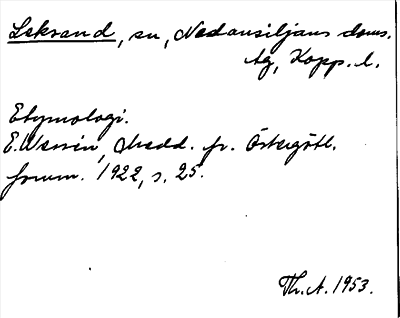 Lekrand, sn, Nedansiljans doms.
Ag, Kopp. l.
Etymologi.
E. Wessén, Medd. fr. Östergötl.
forum. 1922, s. 25.
Th. A. 1953.